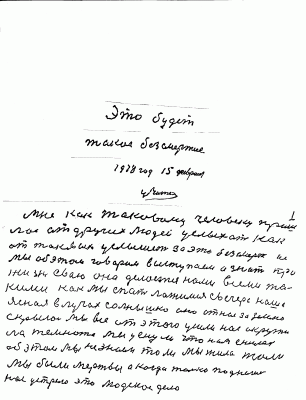 Это будет
такое безсмертие
1978 год 15 февраля
Чита
1
мне как таковому человеку приш
лось от других людей услыхать как
от таковых услышет за это безсмерт ие
мы об этом говорим выступаем а знат про
жизнь свою она делается нами всеми та
кими как мы спат ложимся с вечера наше
ясная в лучах солнышко оно от нас за землю
скрылось мы все от этого ушли нас окружи
ла темнота мы уснули что нам снилас
об этом мы не знали то ли мы жили то ли
мы были мертвы а когда только поднялис
нас устроило это людское дело